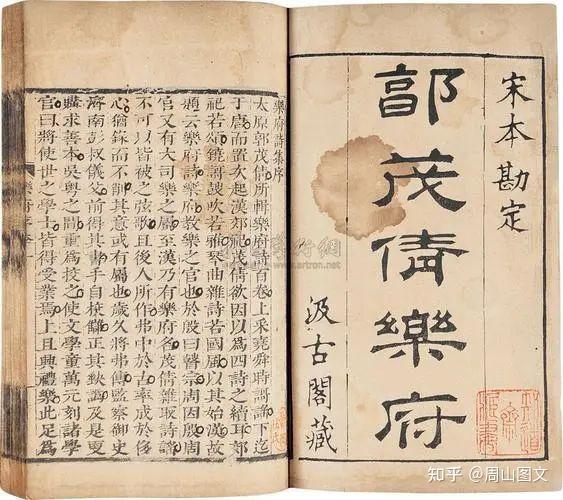 宋本勘定
郭茂倩樂府
汲古閣藏
樂府詩集序
太原郭茂倩所輯樂府詩百卷上采堯舜時謌謠下迄
于唐而置次起漢郊祀茂倩欲因以為四詩之續耳郊
祀若頌鐃謌鼓吹若雅琴曲雜詩若國風以其始漢故
題云樂府詩樂府教樂之官也於殷曰瞽宗周因殷周
官又有大司樂之屬至漢乃有樂府名茂倩雜取詩謠
不可以皆被之弦歌且後人所作弗中於古率成於侈
心猶錄而不削其意或有屬也歲久將弗傳監察御史
濟南彭叔儀父前得其書手自校讎正其缺譌及是更
購求善本吳粵之間重為校之使文學童萬元刻諸學
官曰將使世之學士皆得受業焉上且興禮樂此足為
www.artron.net
知乎 @周山图文